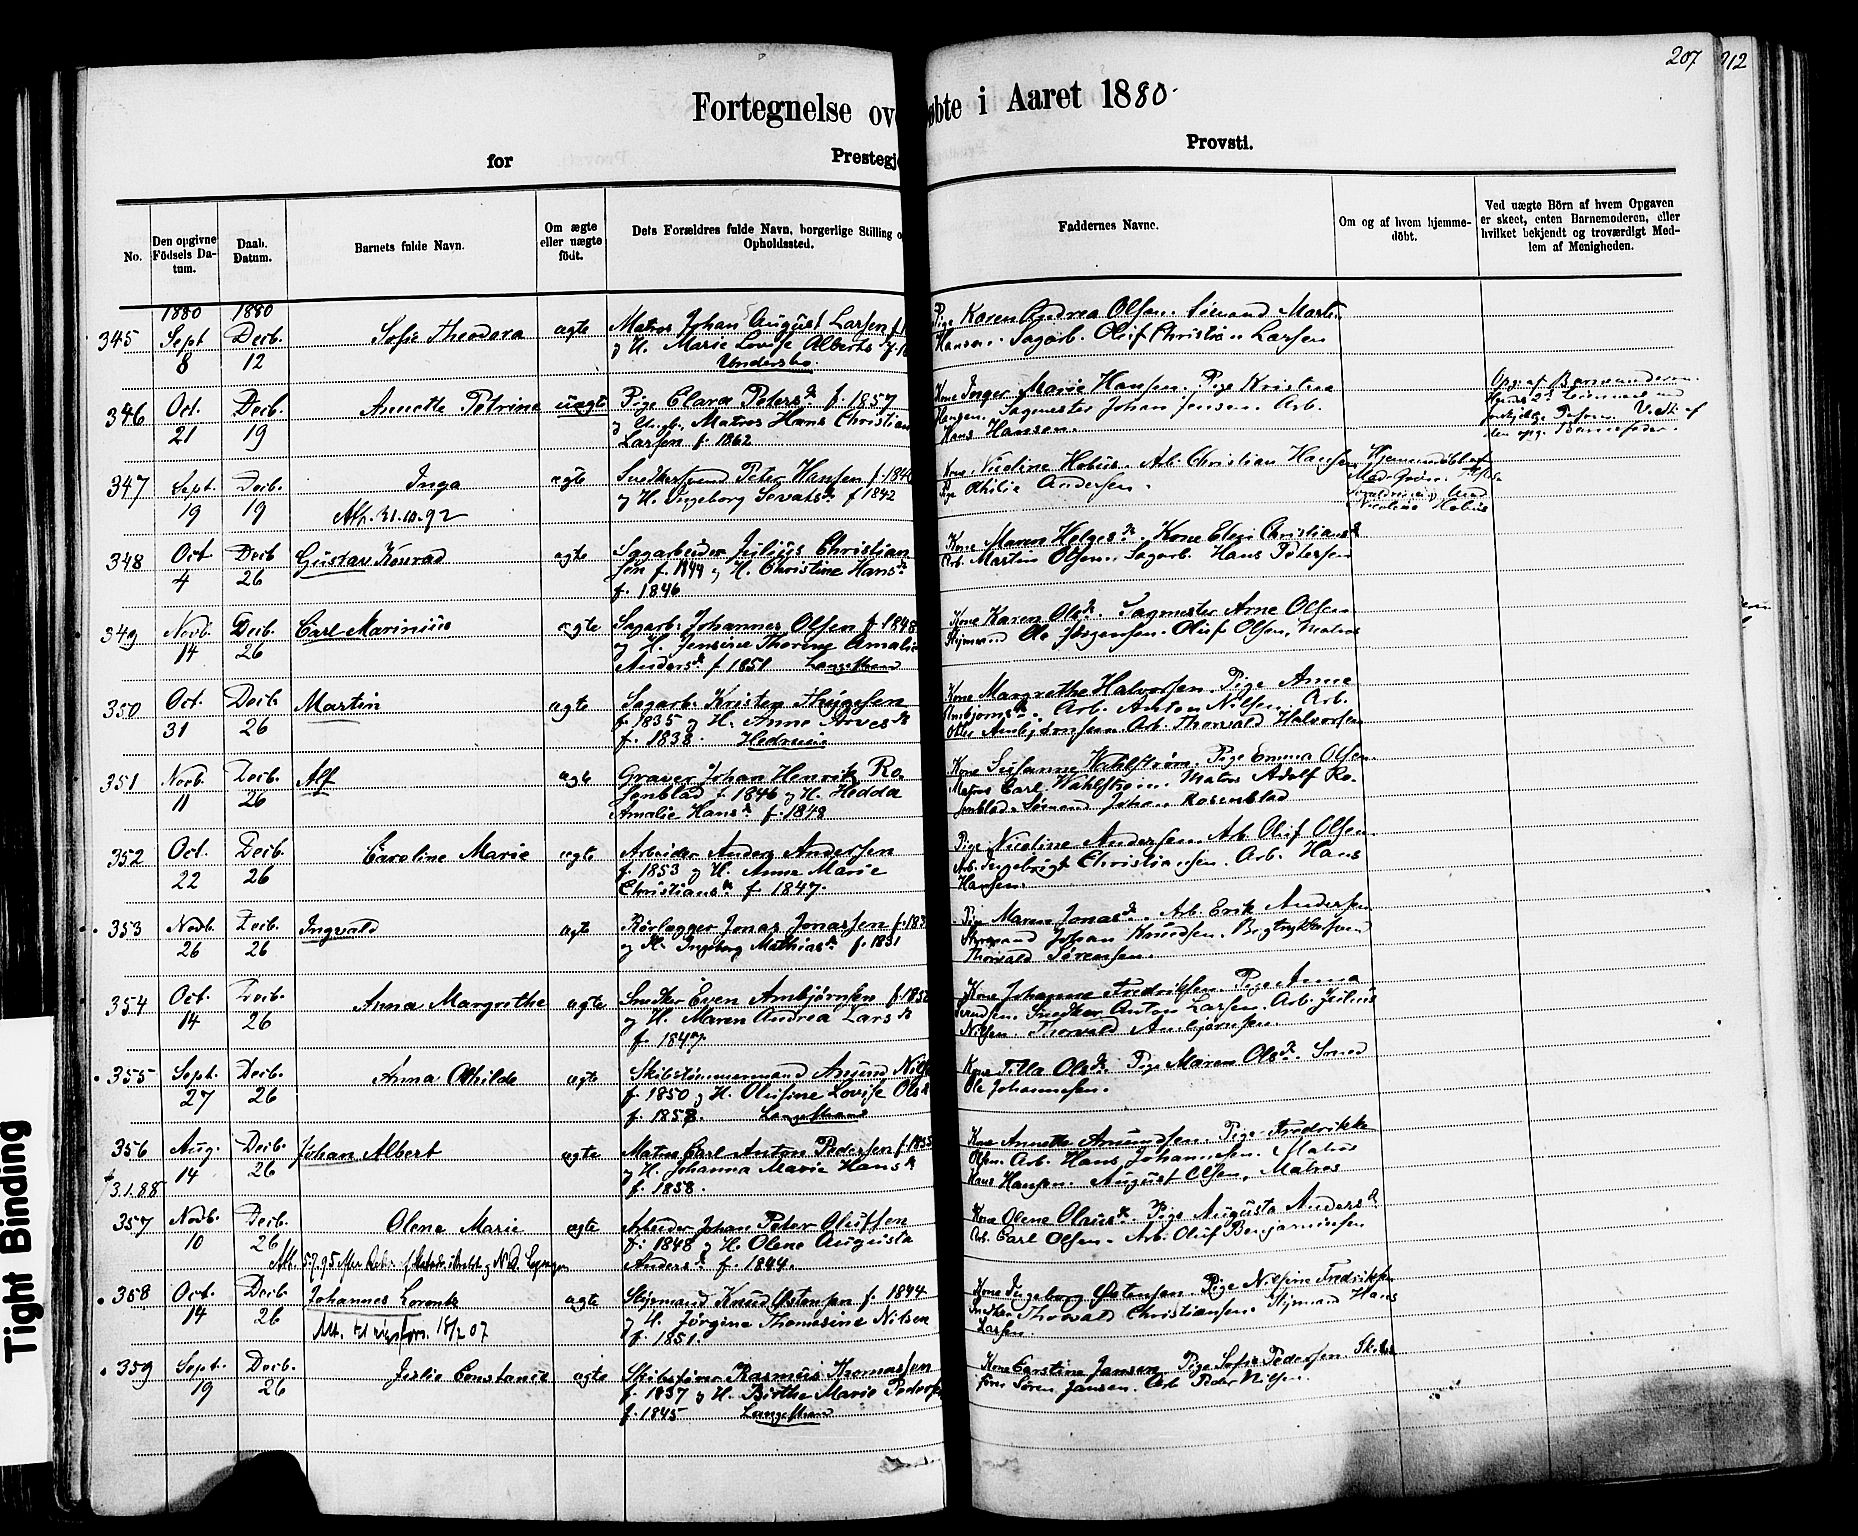 207
212
Fortegnelse ov øbte i Aaret 1880.
for Prestegj Provsti.
No.
Den opgivne Fødsels Datum.
Daab. Datum.
Barnets fulde Navn.
Om ægte eller uægte født.
Dets Forældres fulde Navn, borgerlige Stilling o
Opholdssted.
Faddernes Navne.
Om og af hvem hjemmedöbt.
Ved uægte Börn af hvem Opgaven
er skeet, enten Barnemoderen, eller
hvilket bekjendt og troværdigt Med-
lem af Menigheden.
1880 1880
345 Sept 8 Decb. 12 Sofie Theodora ægte
Matros Johan August Larsen f.
og H. Marie Lovise Alberts
Pige Karen Andrea Olsen. Sömand Martin
Hansen. Sagarb. Oluf Christian Larsen
346 Oct. 21 Decb. 19 Annette Petrine uægte
Pige Clara Petersd. f. 1857
Matros Hans Christian
Larsen f. 1862
Kone Inger Marie Hansen. Pige Kristine
Hansen. Sagmester Johan Jensen. Arb.
Hans Hansen.
Opg. af Barnemoderen.
den opg. Barnefader.
347 Sept. 19 Decb. 19 Inga ægte
Att. 21.10.92
Snedkersvend Peter Hansen f. 1846
og H. Ingeborg f 1842
Kone Nicoline Hobüs. Arb. Christian Hansen
Pige Othilie Andersen.
Nicoline Hobüs
348 Oct 4 Decb 26 Gustav Konrad ægte
Sagarbeider Julius Christian
sen f. 1849 og H. Christine Hansd.
f. 1846
Kone Maren Helgesd. Kone Elen Christiansd.
Arb. Martin Olsen. Sagarb. Hans Petersen
349 Novb. 14 Decb. 26 Carl Marinius ægte
Sagarb. Johannes Olsen f. 1848
og H. Jensine Thorine Amalie
Andersd. f 1851 Langestrand
Kone Karen Olsd. Sagmester Arne Olsen
Styrmand Ole Jörgensen. Oluf Olsen, Matros
350 Oct. 31 Decb. 26 Martin ægte
Sagarb. Kristen Thygesen
f. 1835 og H. Anne Arvesd.
f. 1838. Hedrum
Kone Margrethe Halvorsen. Pige Anne
Ambjörnsd. Arb. Anton Nilsen. Arb.
Ambjörnsen. Arb. Thorvald Halvorsen
351 Novb. 11 Decb. 26 Alf ægte
Graver Johan Henrik Ro-
senblad f. 1846 og H. Hedda
Amalie Hansd. f. 1848
Kone Susanne Wahlström. Pige Emma Olsen.
Matros Carl Wahlström. Matros Adolf Ro-
senblad. Sömand Johan Rosenblad
352 Oct. 22 Decb. 26 Caroline Marie ægte
Arbeider Anders Andersen
f. 1853 og H. Anne Marie
Christiansd. f. 1847.
Pige Nicoline Andersen. Arb. Oluf Olsen.
Arb. Ingebrigt Christiansen. Arb. Hans
Hansen.
353 Novb. 26 Decb. 26 Ingvald ægte
Rörlægger Jonas Jonassen f. 183
og H. Ingeborg Mathiasd. f. 1831
Pige Maren Jonasd. Arb. Erik Andersen
Styrmand Johan Knudsen. Bogtrykkersvend
Thorvald Sörensen.
354 Oct. 14 Decb. 26 Anna Margrethe ægte
Snedker Even Ambjörnsen f. 1852
og H. Maren Andrea Larsd.
f. 1847.
Kone Johanne Fredriksen. Pige Anna
Berndsen. Snedker Anton Larsen. Arb. Julius
Nilsen. Thorvald Ambjörnsen.
355 Sept. 27 Decb. 26 Anna Othilde ægte
Skibstömmermand Amund Nils
f. 1850 og H. Olufine Lovise Olsd
f. 1858. Langestrand
Kone Olsd. Pige Maren Olsd. Smed
Ole Johannesen.
356 Aug. 14 Decb. 26 Johan Albert ægte
† 3.1.88
Matros Carl Anton Pedersen f. 1855
og H. Johanna Marie Hansd.
f. 1858.
Kone Annette Amundsen. Pige Fredrikke
Olsen. Arb. Hans Johannesen. Matros
Hans Hansen. August Olsen, Matros
357 Novb. 10 Decb. 26 Olene Marie ægte
Arbeider Johan Peter Olufsen
f. 1848 og H. Olene Augusta
Andersd. f. 1844.
Kone Olene Olausd. Pige Augusta Andersd.
Arb. Carl Olsen. Arb. Oluf Benjaminsen
358 Oct. 14 Decb 26 Johannes Lorentz ægte
Styrmand Knud Östensen f. 1844
og H. Jörgine Thomasine Nilsen
f. 1851.
Kone Ingeborg Östensen. Pige Nilsine Fredriksen
Snedker Thorvald Christiansen. Styrmand Hans
Larsen
359 Sept. 19 Decb. 26 Julie Constance ægte
Skibsförer Rasmus Thomassen
f. 1837 og H. Birthe Marie Peders
f. 1845 Langestrand
Kone Carstine Jansen. Pige Sofie Pedersen. Skibs
förer Sören Jansen. Arb. Peder Nilsen.
Tight Binding